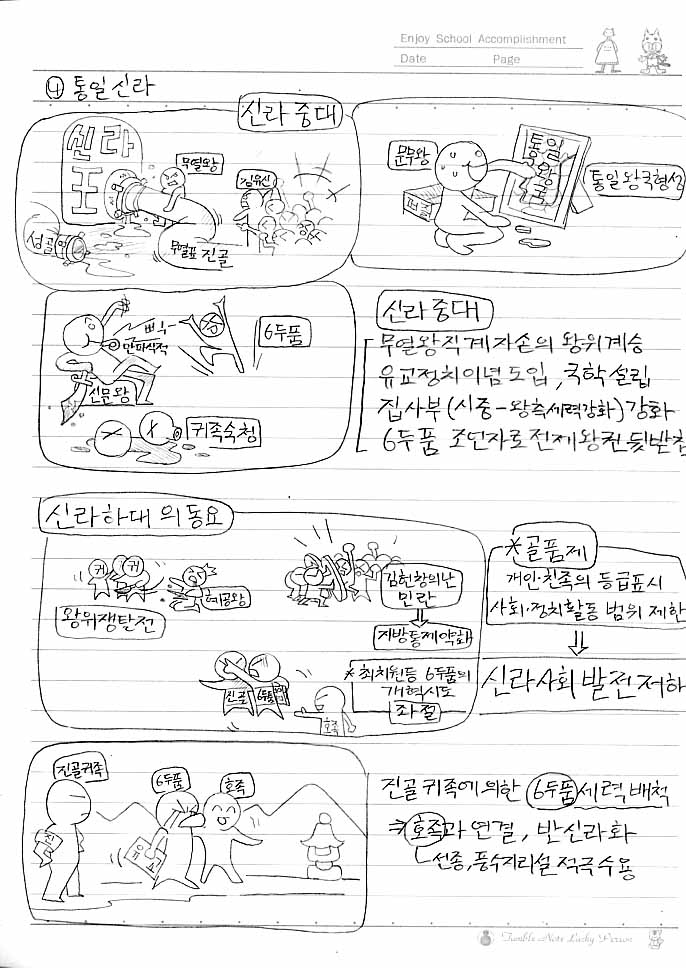 Enjoy School Accomplishment
Date Page
④ 통일신라
신라 중대
신라
王
무열왕
김유신
성골
무열표 진골
문무왕
통일
왕국
통일왕국형성
물감
삐익-
만파식적
6두품
신문왕
귀족숙청
신라 중대
무열왕직계자손의 왕위계승
유교정치이념도입, 국학설립
집사부(시중-왕측세력강화)강화
6두품 조언자로전제왕권뒷받침
신라하대의동요
귀 귀
혜공왕
왕위쟁탈전
김헌창의난
민란
지방통제약화
*골품제
개인·친족의 등급표시
사회·정치활동 범위 제한
신라사회발전저하
*최치원등 6두품의
개혁시도
좌절
진골
6두품
호족
진골귀족
6두품
호족
진골
유교
진골귀족에의한 6두품세력배척
호족과연결, 반신라화
선종, 풍수지리설 적극수용
Tumble Note Lucky Person